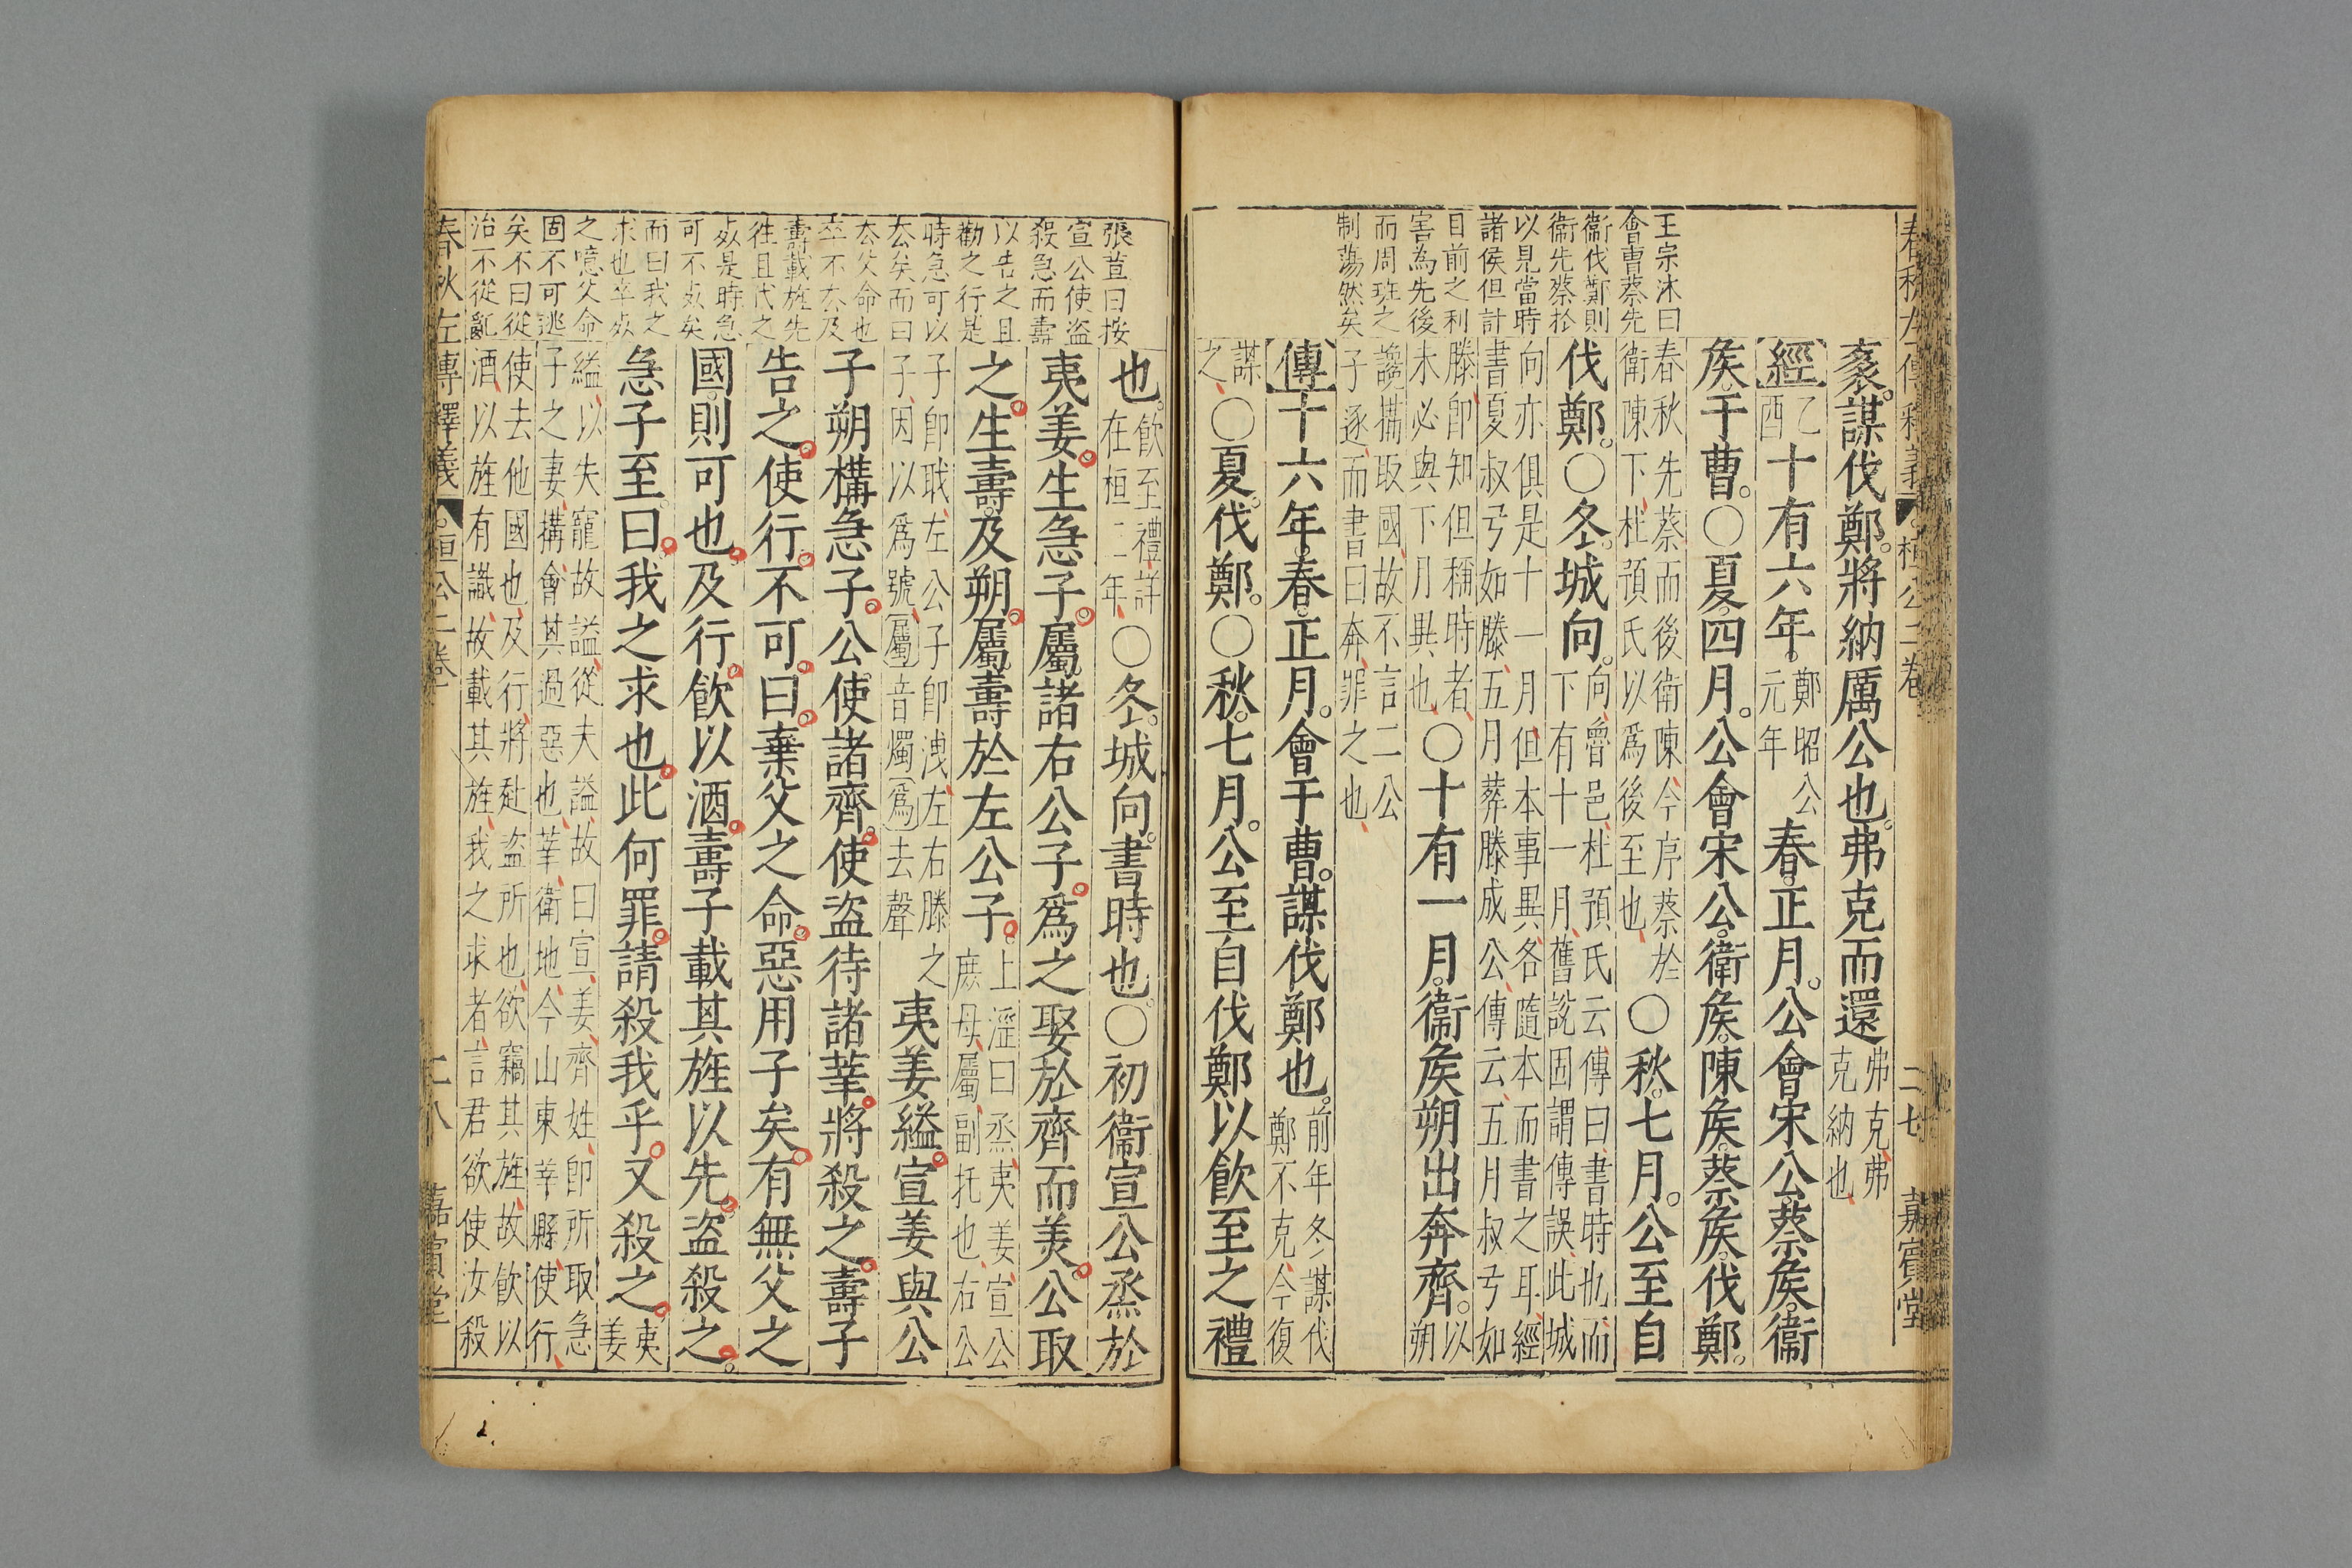 春秋左傳釋義 桓公二卷 二七 嘉賓堂
王宗沐曰
會曹蔡先
衞伐鄭則
衞先蔡於
以見當時
諸侯但計
目前之利
害為先後
而周班之
制蕩然矣
袲。謀伐鄭。將納厲公也。弗克而還弗克、弗克納也、
經乙酉十有六年。鄭昭公元年春。正月。公會宋公。蔡矦。衞
矦。于曹。〇夏。四月。公會宋公。衞矦。陳矦。蔡矦。伐鄭。
春秋先蔡而後衛陳、今序蔡於衛陳下、杜預氏以爲後至也、〇秋。七月。公至自
伐鄭。〇冬。城向。向、魯邑、杜預氏云、傳曰、書時也、而下有十一月、舊説因謂傳誤、此城
向亦俱是十一月、但本事異、各隨本而書之耳、經書夏叔弓如滕、五月葬滕成公、傳云、五月叔弓如
滕、卽知但稱時者、未必與下月異也、〇十有一月。衞矦朔出奔齊。以朔
讒搆取國、故不言二公子逐、而書曰奔、罪之也、
傳十六年。春。正月。會于曹。謀伐鄭也。前年冬謀伐鄭不克、今復
謀之、〇夏。伐鄭。〇秋。七月。公至自伐鄭以飮至之禮
張萱曰按
宣公使盜
殺急而壽
以告之且
勸之行是
時急可以
去矣而曰
棄父命也
卒不去及
壽載旌先
往且代之
死是時急
可不死矣
而曰我之
求也卒死
之噫父命
固不可逃
矣不曰從
治不從亂
也。飮至禮、詳在桓二年、〇冬。城向。書時也。〇初衞宣公烝於
夷姜。生急子。屬諸右公子。爲之娶於齊而美。公取
之。生壽。及朔。屬壽於左公子。上淫曰烝、夷姜、宣公庶母、屬、副托也、右公
子卽職、左公子卽洩、左右滕之子、因以爲號、屬音燭爲去聲夷姜縊。宣姜與公
子朔構急子。公使諸齊。使盜待諸莘。將殺之。壽子
告之。使行。不可。曰。棄父之命。惡用子矣。有無父之
國。則可也。及行。飮以酒。壽子載其旌以先。盜殺之。
急子至。曰。我之求也。此何罪。請殺我乎。又殺之。夷姜
縊、以失寵故、謚從夫謚、故曰宣、姜、齊姓、卽所取急子之妻、搆、會其過惡也、莘、衛地、今山東莘縣、使行、
使去他國也、及行、將赴盜所也、欲竊其旌、故飮以酒、以旌有識、故載其旌、我之求者、言君欲使汝殺
春秋左傳釋義 桓公二卷 二八 嘉賓堂